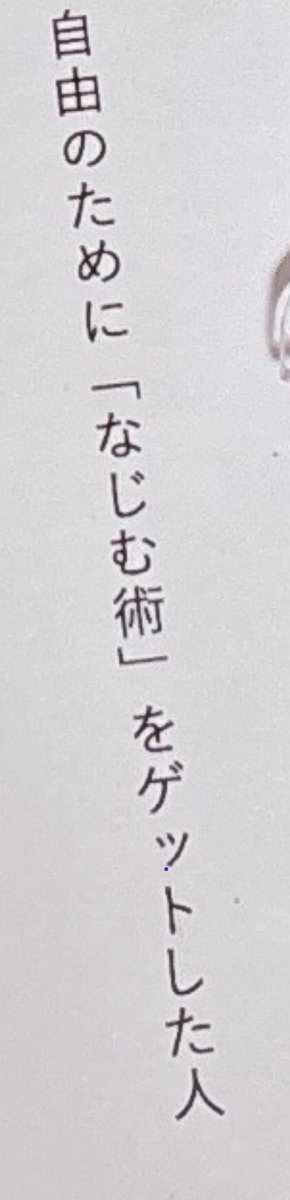 自由のために「なじむ術」をゲットした人